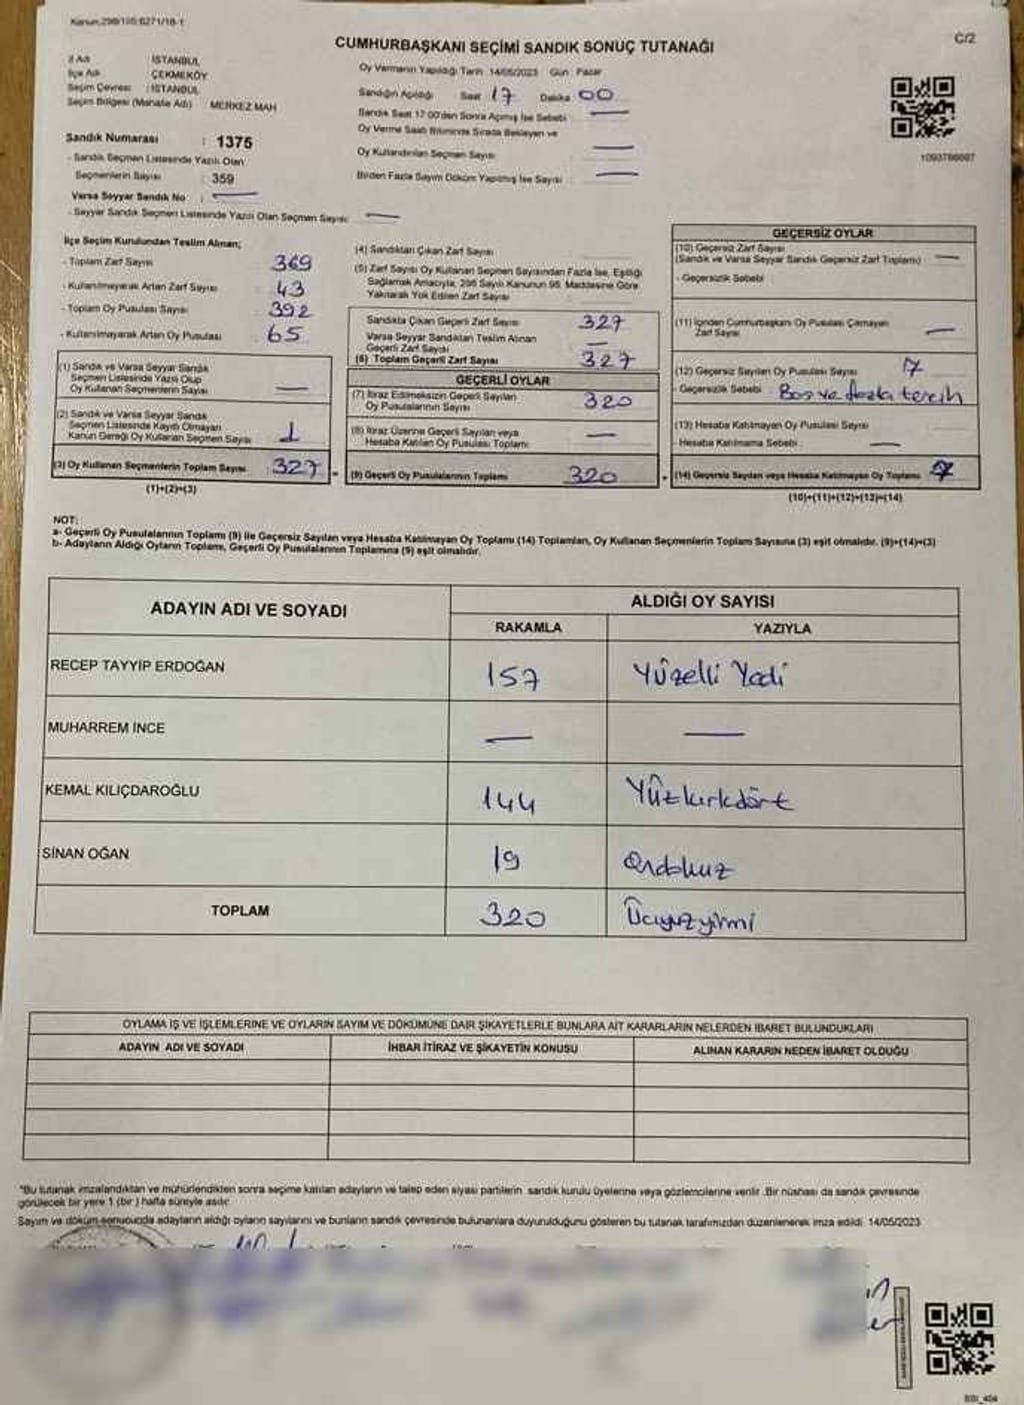 Kanun:298/105;6271/18-1
C/2
CUMHURBAŞKANI SEÇİMİ SANDIK SONUÇ TUTANAĞI
İl Adı : İSTANBUL
İlçe Adı : ÇEKMEKÖY
Seçim Çevresi : İSTANBUL
Seçim Bölgesi (Mahalle Adı) : MERKEZ MAH
Sandık Numarası : 1375
- Sandık Seçmen Listesinde Yazılı Olan
Seçmenlerin Sayısı : 359
Varsa Seyyar Sandık No : —
- Seyyar Sandık Seçmen Listesinde Yazılı Olan Seçmen Sayısı: —
Oy Vermenin Yapıldığı Tarih : 14/05/2023 Gün : Pazar
Sandığın Açıldığı Saat 17 Dakika 00
Sandık Saat 17:00'den Sonra Açılmış İse Sebebi : —
Oy Verme Saati Bitiminde Sırada Bekleyen ve
Oy Kullandırılan Seçmen Sayısı : —
Birden Fazla Sayım Döküm Yapılmış İse Sayısı : —
1093766697
İlçe Seçim Kurulundan Teslim Alınan;
- Toplam Zarf Sayısı : 369
- Kullanılmayarak Artan Zarf Sayısı : 43
- Toplam Oy Pusulası Sayısı : 392
- Kullanılmayarak Artan Oy Pusulası : 65
(1) Sandık ve Varsa Seyyar Sandık
Seçmen Listesinde Yazılı Olup
Oy Kullanan Seçmenlerin Sayısı : —
(2) Sandık ve Varsa Seyyar Sandık
Seçmen Listesinde Kayıtlı Olmayan
Kanun Gereği Oy Kullanan Seçmen Sayısı : 1
(3) Oy Kullanan Seçmenlerin Toplam Sayısı : 327
(1)+(2)=(3)
(4) Sandıktan Çıkan Zarf Sayısı :
(5) Zarf Sayısı Oy Kullanan Seçmen Sayısından Fazla İse, Eşitliği
Sağlamak Amacıyla, 298 Sayılı Kanunun 98. Maddesine Göre
Yakılarak Yok Edilen Zarf Sayısı :
Sandıkta Çıkan Geçerli Zarf Sayısı : 327
Varsa Seyyar Sandıktan Teslim Alınan
Geçerli Zarf Sayısı : —
(6) Toplam Geçerli Zarf Sayısı : 327
GEÇERLİ OYLAR
(7) İtiraz Edilmeksizin Geçerli Sayılan
Oy Pusulalarının Sayısı : 320
(8) İtiraz Üzerine Geçerli Sayılan veya
Hesaba Katılan Oy Pusulası Toplamı : —
(9) Geçerli Oy Pusulalarının Toplamı : 320
GEÇERSİZ OYLAR
(10) Geçersiz Zarf Sayısı
(Sandık ve Varsa Seyyar Sandık Geçersiz Zarf Toplamı) : —
- Geçersizlik Sebebi :
(11) İçinden Cumhurbaşkanı Oy Pusulası Çıkmayan
Zarf Sayısı : —
(12) Geçersiz Sayılan Oy Pusulası Sayısı : 7
- Geçersizlik Sebebi : Boş ve fazla tercih
(13) Hesaba Katılmayan Oy Pusulası Sayısı :
- Hesaba Katılmama Sebebi : —
(14) Geçersiz Sayılan veya Hesaba Katılmayan Oy Toplamı : 7
(10)+(11)+(12)+(13)=(14)
NOT:
a- Geçerli Oy Pusulalarının Toplamı (9) ile Geçersiz Sayılan veya Hesaba Katılmayan Oy Toplamı (14) Toplamları, Oy Kullanan Seçmenlerin Toplam Sayısına (3) eşit olmalıdır. (9)+(14)=(3)
b- Adayların Aldığı Oyların Toplamı, Geçerli Oy Pusulalarının Toplamına (9) eşit olmalıdır.
ADAYIN ADI VE SOYADI
ALDIĞI OY SAYISI
RAKAMLA YAZIYLA
RECEP TAYYİP ERDOĞAN 157 Yüzelli Yedi
MUHARREM İNCE — —
KEMAL KILIÇDAROĞLU 144 Yüzkırkdört
SİNAN OĞAN 19 Ondokuz
TOPLAM 320 Üçyüzyirmi
OYLAMA İŞ VE İŞLEMLERİNE VE OYLARIN SAYIM VE DÖKÜMÜNE DAİR ŞİKAYETLERLE BUNLARA AİT KARARLARIN NELERDEN İBARET BULUNDUKLARI
ADAYIN ADI VE SOYADI İHBAR İTİRAZ VE ŞİKAYETİN KONUSU ALINAN KARARIN NEDEN İBARET OLDUĞU
*Bu tutanak imzalandıktan ve mühürlendikten sonra seçime katılan adayların ve talep eden siyasi partilerin sandık kurulu üyelerine veya gözlemcilerine verilir .Bir nüshası da sandık çevresinde
görülecek bir yere 1 (bir ) hafta süreyle asılır.
Sayım ve döküm sonucunda adayların aldığı oyların sayılarını ve bunların sandık çevresinde bulunanlara duyurulduğunu gösteren bu tutanak tarafımızdan düzenlenerek imza edildi. 14/05/2023